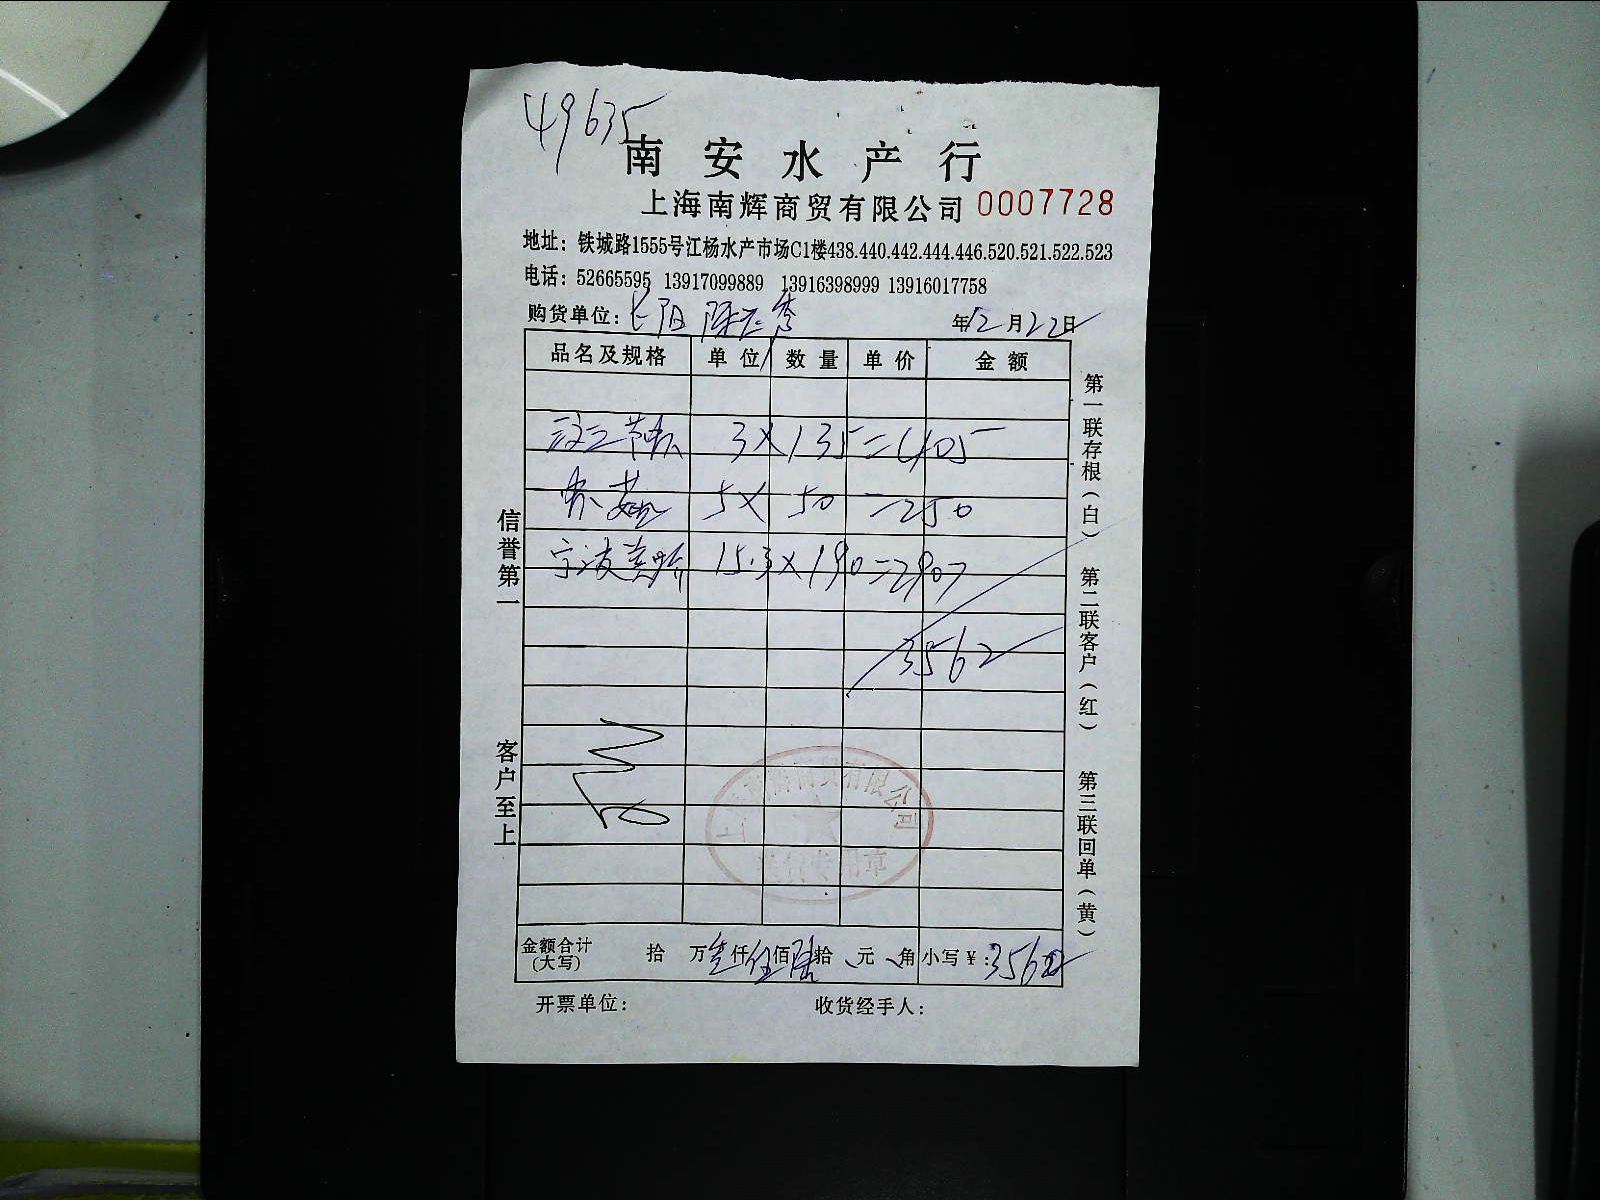 49635
南安水产行
上海南辉商贸有限公司 0007728
地址：铁城路1555号江杨水产市场C1楼438.440.442.444.446.520.521.522.523
电话：52665595 13917099889 13916398999 13916017758
购货单位： 年12月22日
品名及规格 单位 数量 单价 金额
3×135=405
5×50=250
宁波 15.3×190=2907
3562
金额合计(大写) 拾 万 仟伍佰陆拾 元 角 小写￥：3562
开票单位： 收货经手人：
信誉第一 客户至上
第一联存根（白） 第二联客户（红） 第三联回单（黄）